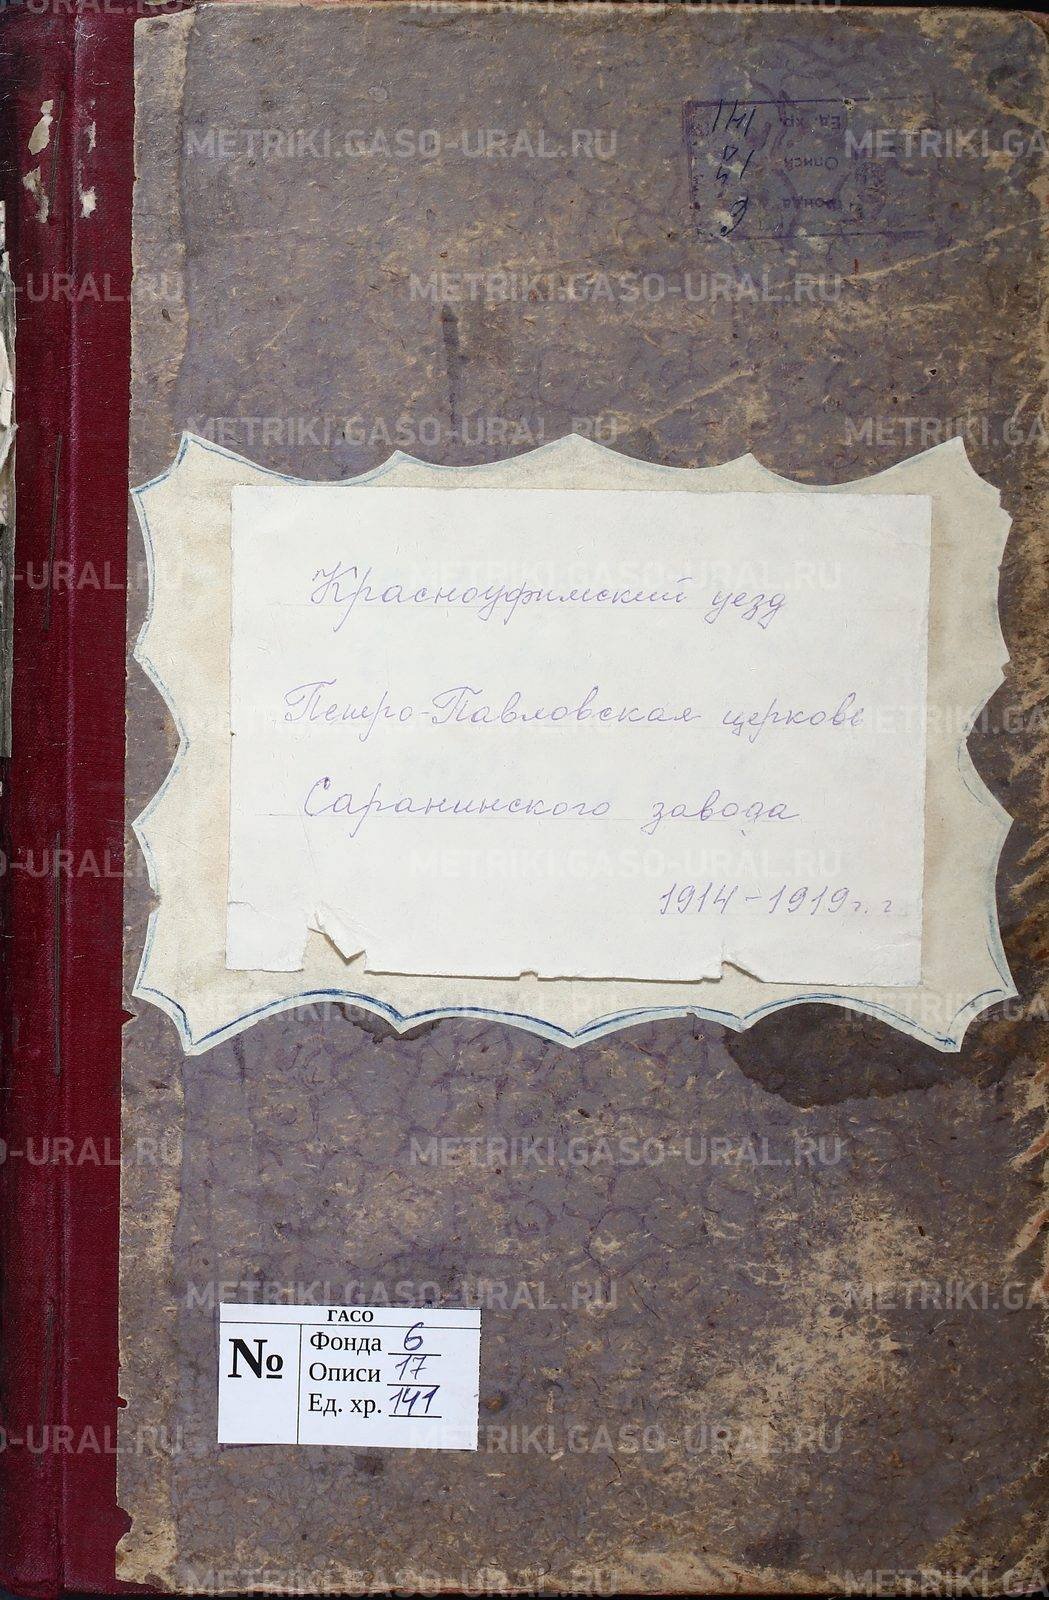 Красноуфимский уезд
Петро-Павловская церковь
Саранинского завода
1914-1919 г. г
ГАСО
№
Фонда 6
Описи 17
Ед. хр. 141
Фонда 6
Описи 17
Ед. хр. 141
METRIKI.GASO-URAL.RU